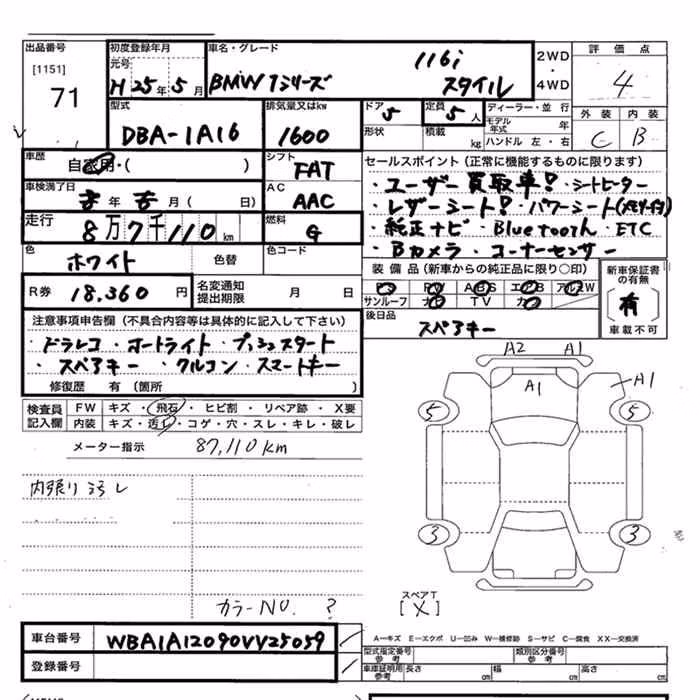 出品番号
[1151]
71
初度登録年月
元号
H 25年 5月
車名・グレード
BMW 1シリーズ
116i
スタイル
2WD
・
4WD
評価点
4
外装 内装
C B
型式
DBA-1A16
排気量又はkw
1600
ドア
5
定員
5人
形状
積載
kg
ディーラー・並行
モデル年式 年
ハンドル 左・右
車歴
自家用・( )
シフト
FAT
車検満了日
年 月( 日)
AC
AAC
走行
8万7千110km
燃料
G
色
ホワイト
色替
色コード
R券
18,360円
名変通知
提出期限
月 日
セールスポイント(正常に機能するものに限ります)
・ユーザー買取車!・シートヒーター
・レザーシート!・パワーシート
・純正ナビ・Bluetooth・ETC
・Bカメラ・コーナーセンサー
装備品(新車からの純正品に限り〇印)
PS PW ABS エアB アルミW
サンルーフ ナビ TV カワ
新車保証書
の有無
有
車載不可
後日品
スペアキー
注意事項申告欄(不具合内容等は具体的に記入して下さい)
・ドラレコ・オートライト・プッシュスタート
・スペアキー・クルコン・スマートキー
修復歴 有(箇所 )
検査員
記入欄
FW キズ・飛石・ヒビ割・リペア跡・X要
内装 キズ・汚レ・コゲ・穴・スレ・キレ・破レ
メーター指示 87,110km
内張り汚レ
カラーNO. ?
A2 A1
A1
A1
5 5
3 3
スペアT
[X]
車台番号
WBA1A12090VV25059
登録番号
A―キズ E―エクボ U―凹み W―補修跡 S―サビ C―腐食 XX―交換済
型式指定番号
参考
類別区分番号
参考
車庫証明用
参考
長さ cm
幅 cm
高さ cm